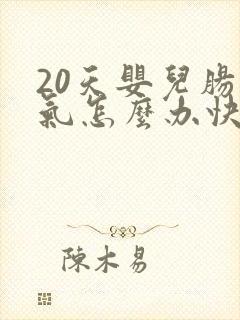 20天嬰兒腸
氣怎麼办快
陳木易